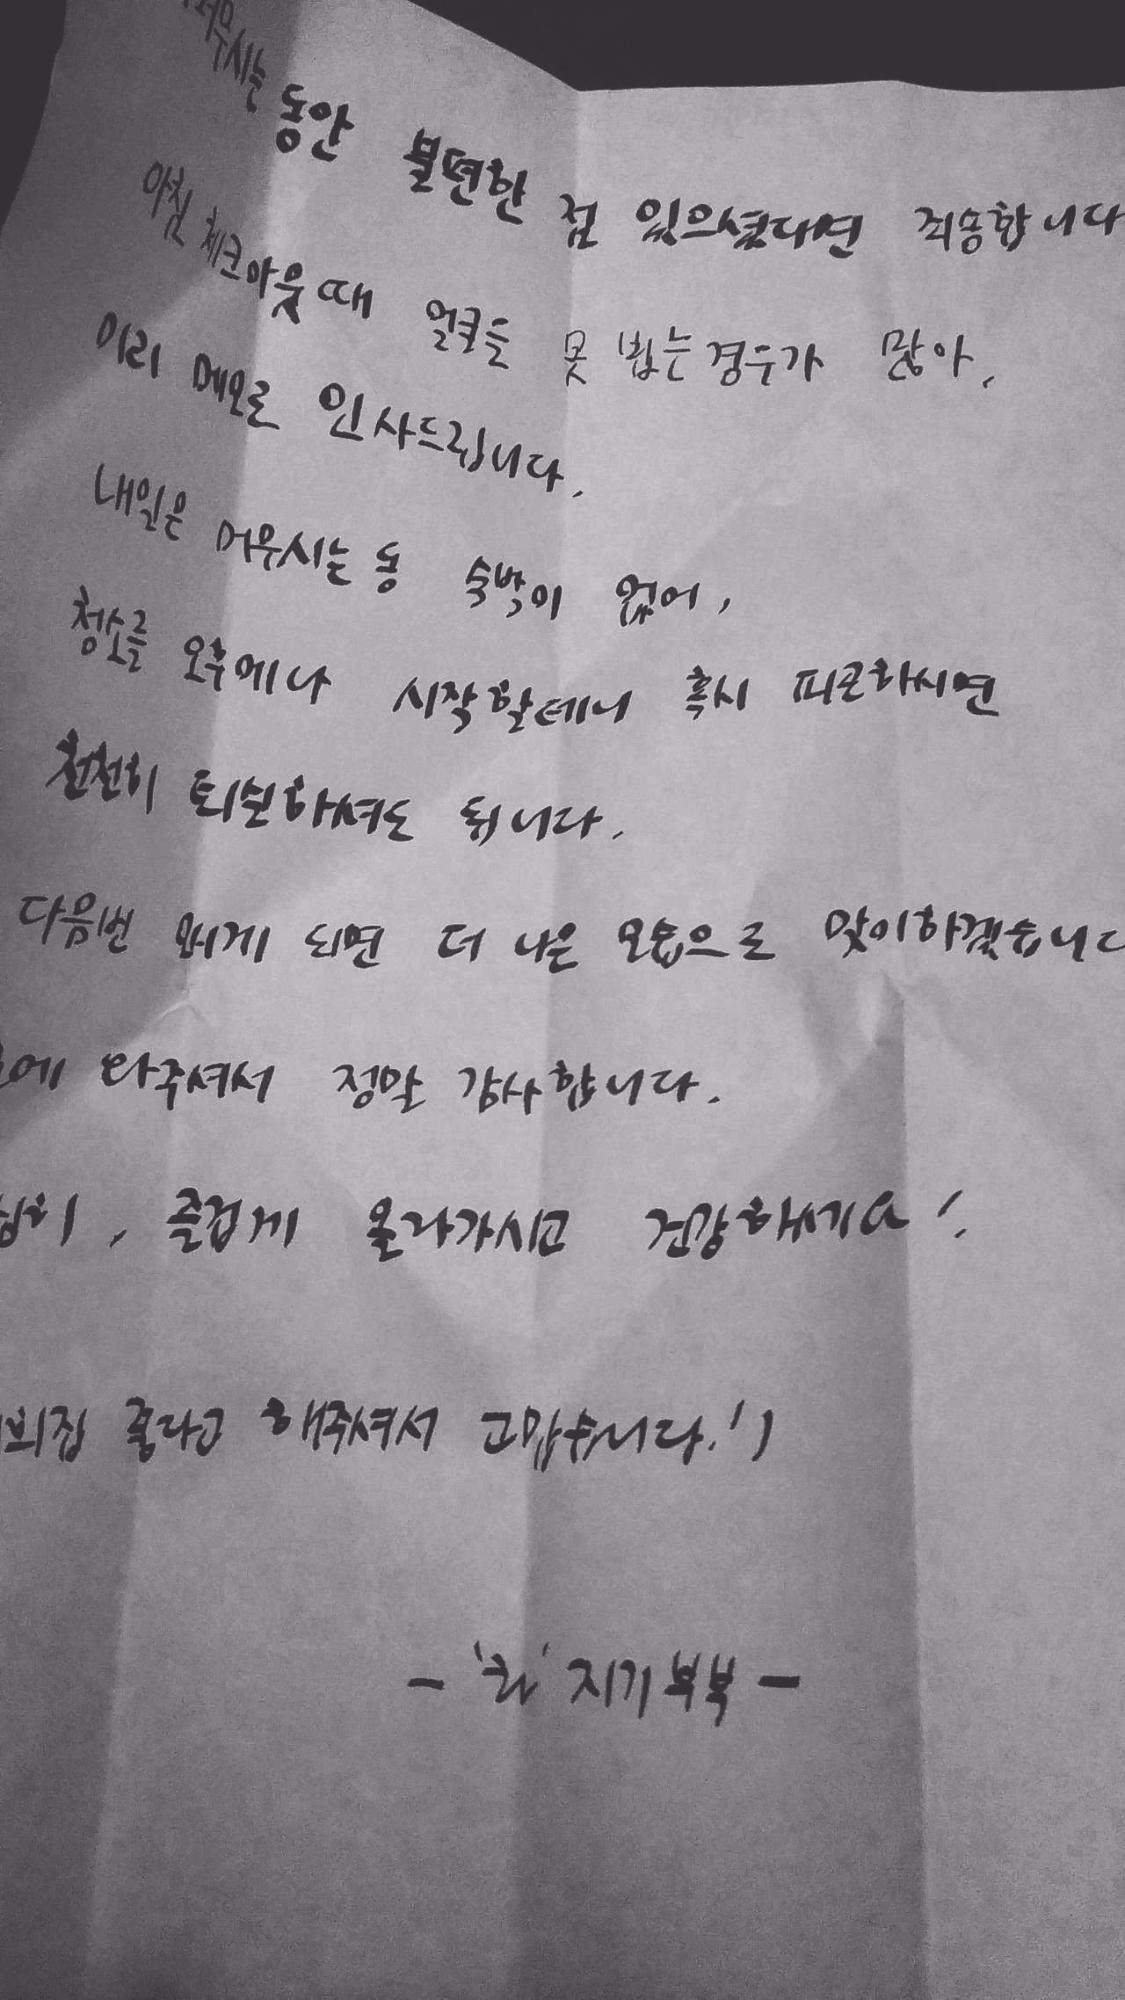 머무시는 동안 불편한 점 있으셨다면 죄송합니다
아침 체크아웃 때 얼굴을 못 뵙는 경우가 많아,
미리 메모로 인사드립니다.
내일은 머무시는 동 숙박이 없어,
청소를 오후에나 시작할테니 혹시 피곤하시면
천천히 퇴실하셔도 됩니다.
다음번 뵙게 되면 더 나은 모습으로 맞이하겠습니다
에 와주셔서 정말 감사합니다.
, 즐겁게 올라가시고 건강하세요!
좋다고 해주셔서 고맙습니다.!)
- ' ' 지기 북북 -